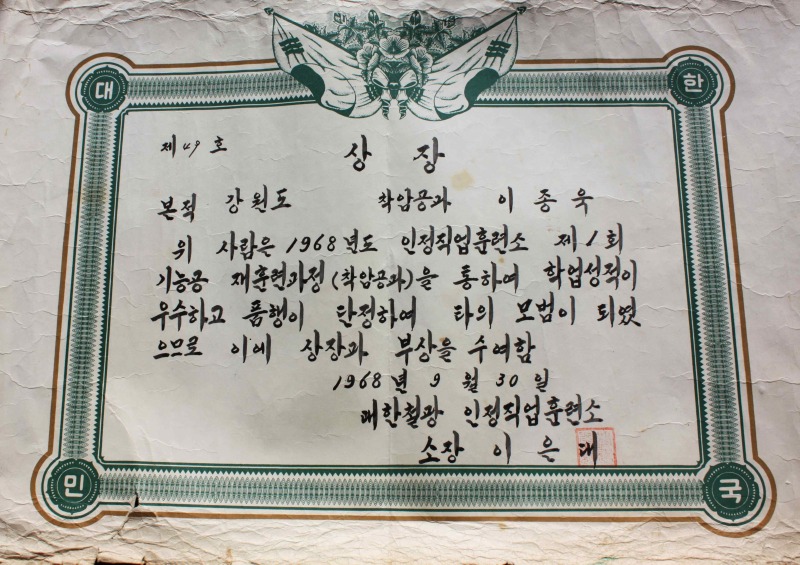 대 한
제 49 호
상 장
본적 강원도 착암공과 이종욱
위 사람은 1968년도 인정직업훈련소 제1회
기능공 재훈련과정(착암공과)을 통하여 학업성적이
우수하고 품행이 단정하여 타의 모범이 되였
으므로 이에 상장과 부상을 수여함
1968년 9월 30일
대한철광 인정직업훈련소
소장 이은대
민 국